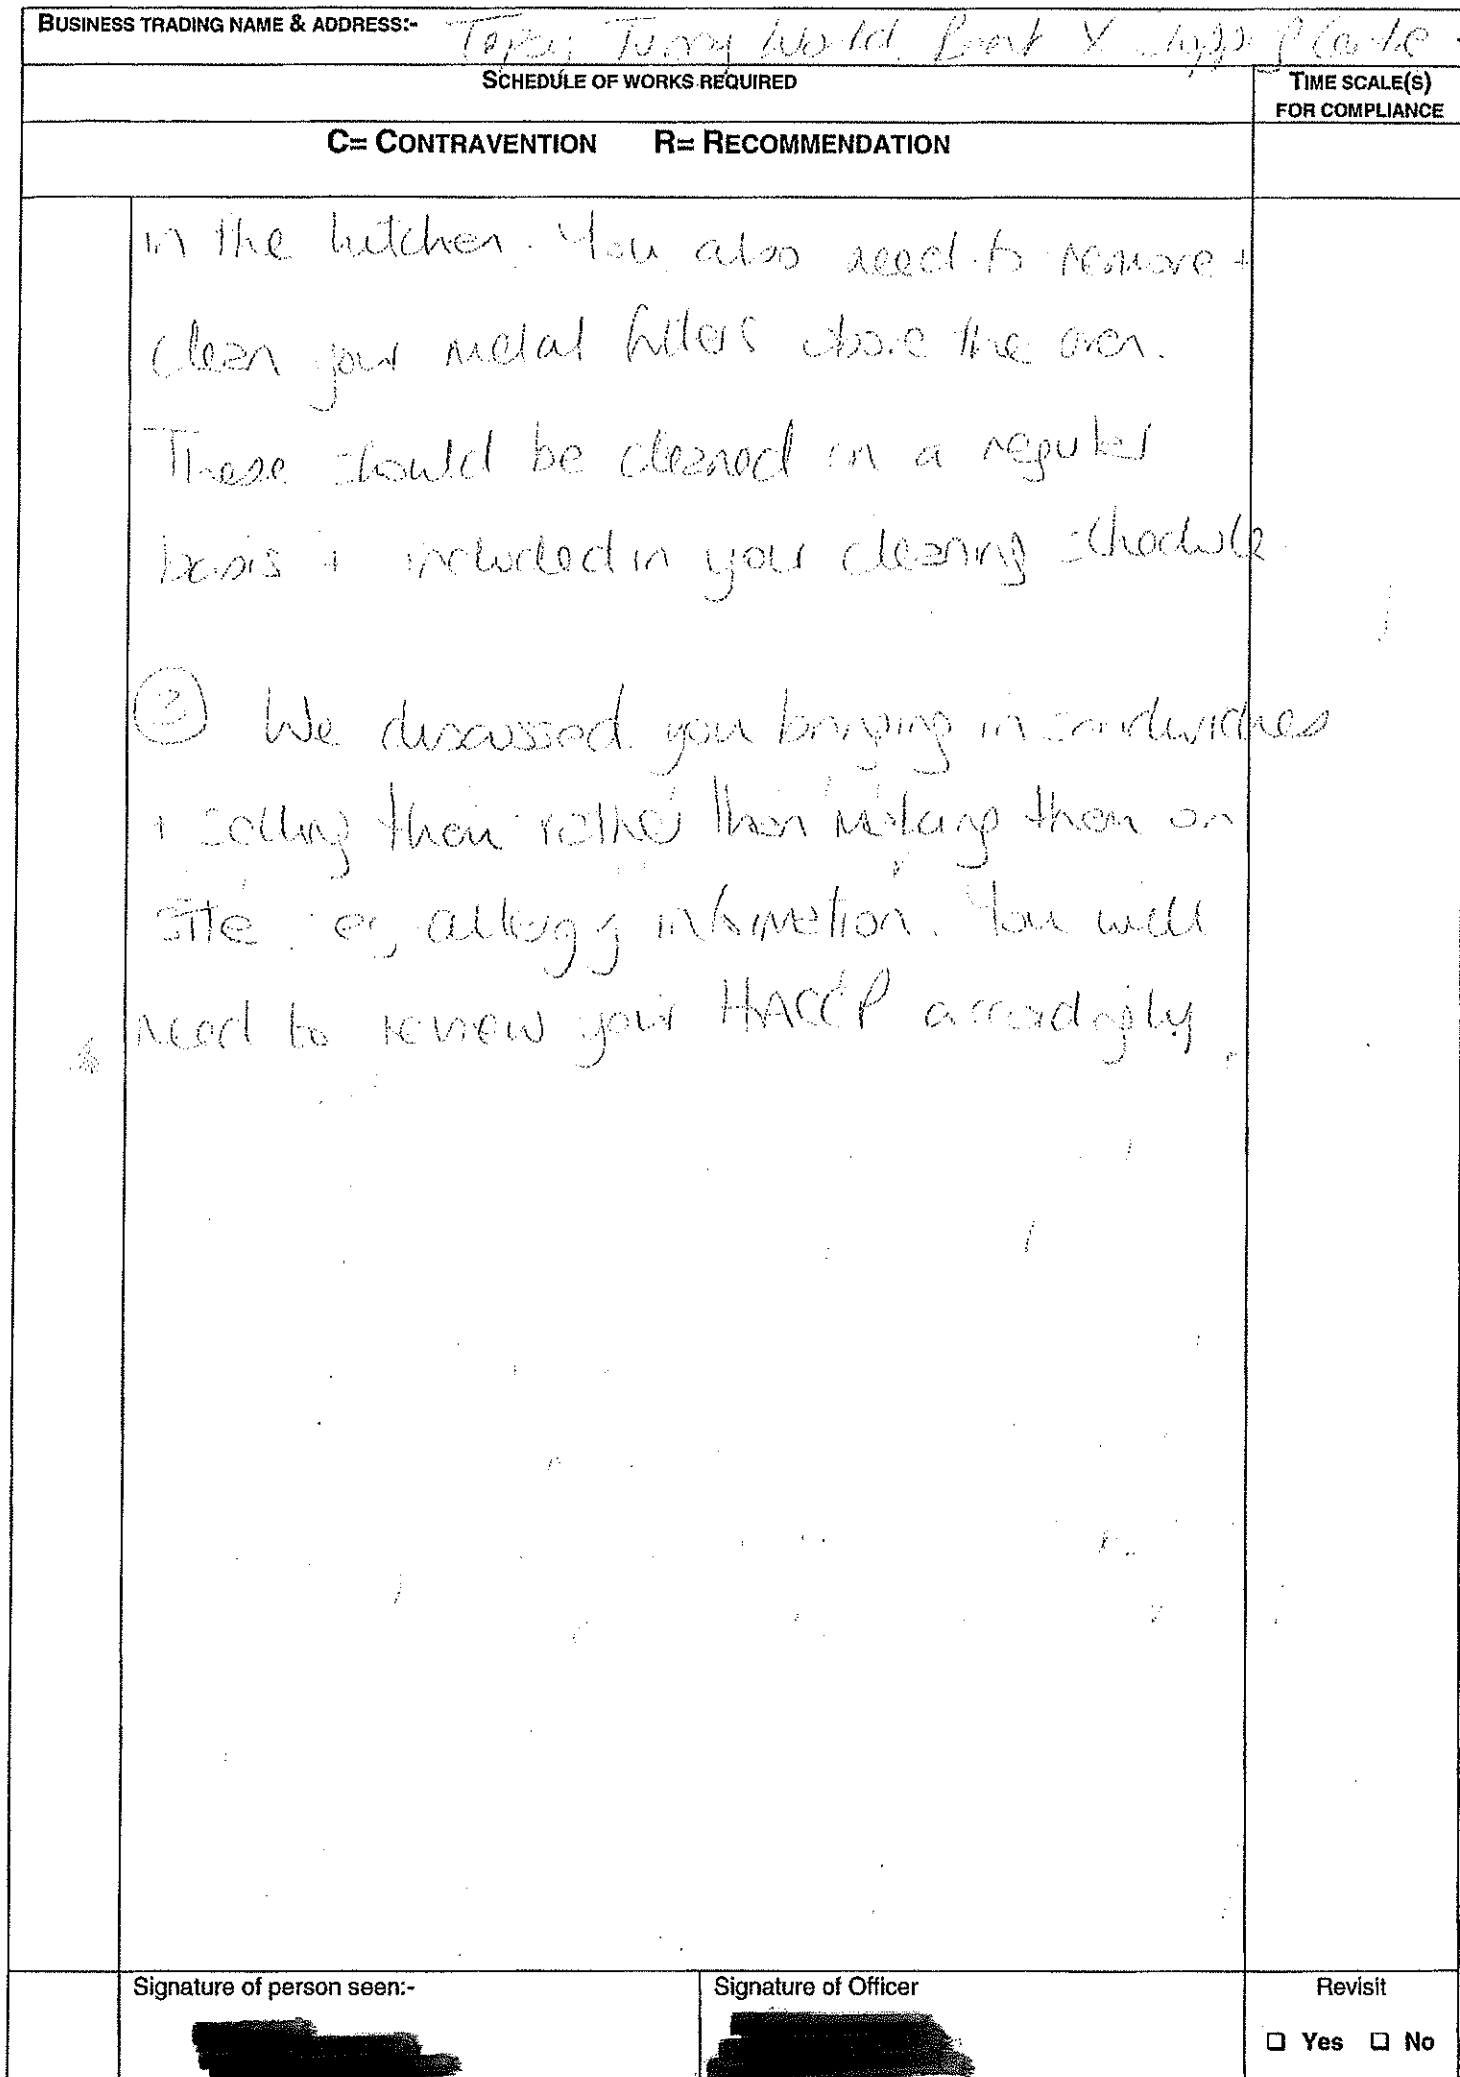 BUSINESS TRADING NAME & ADDRESS:- Topsy Turvy World Brent X
SCHEDULE OF WORKS REQUIRED
TIME SCALE(S)
FOR COMPLIANCE
C= CONTRAVENTION R= RECOMMENDATION
in the kitchen. You also need to remove +
clean your metal filters above the oven.
These should be cleaned on a regular
basis + included in your cleaning schedule.
We discussed you bringing in sandwiches
+ selling them rather than making them on
site. eg allergy information. You will
need to review your HACCP accordingly.
Signature of person seen:-
Signature of Officer
Revisit
☐ Yes ☐ No